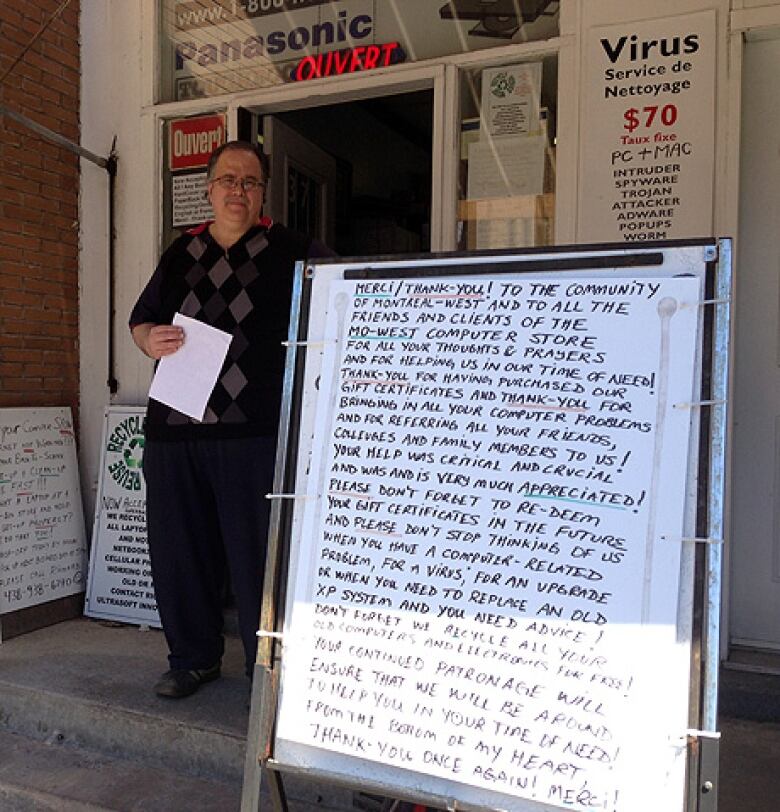 www.1-800-M
Panasonic
OUVERT
Ouvert
Virus
Service de
Nettoyage
$70
Taux fixe
PC + MAC
INTRUDER
SPYWARE
TROJAN
ATTACKER
ADWARE
POPUPS
WORM
MERCI/THANK-YOU! TO THE COMMUNITY
OF MONTREAL-WEST AND TO ALL THE
FRIENDS AND CLIENTS OF THE
MO-WEST COMPUTER STORE
FOR ALL YOUR THOUGHTS & PRAYERS
AND FOR HELPING US IN OUR TIME OF NEED!
THANK-YOU FOR HAVING PURCHASED OUR
GIFT CERTIFICATES AND THANK-YOU FOR
BRINGING IN ALL YOUR COMPUTER PROBLEMS
AND FOR REFERRING ALL YOUR FRIENDS,
COLLEUGES AND FAMILY MEMBERS TO US!
YOUR HELP WAS CRITICAL AND CRUCIAL
AND WAS AND IS VERY MUCH APPRECIATED!
PLEASE DON'T FORGET TO RE-DEEM
YOUR GIFT CERTIFICATES IN THE FUTURE
AND PLEASE DON'T STOP THINKING OF US
WHEN YOU HAVE A COMPUTER-RELATED
PROBLEM, FOR A VIRUS, FOR AN UPGRADE
OR WHEN YOU NEED TO REPLACE AN OLD
XP SYSTEM AND YOU NEED ADVICE!
DON'T FORGET WE RECYCLE ALL YOUR
OLD COMPUTERS AND ELECTRONICS FOR FREE!
YOUR CONTINUED PATRONAGE WILL
ENSURE THAT WE WILL BE AROUND
TO HELP YOU IN YOUR TIME OF NEED!
FROM THE BOTTOM OF MY HEART,
THANK-YOU ONCE AGAIN! MERCI!
RECYCLE
REUSE
NOW ACCEPT
WE RECYCLE
ALL LAPTO
AND NO
NETBOOK
CELLULAR PH
WORKING OR
OLD OR
CONTACT R
ULTRASOFT INNO
your Computer
PLEASE CALL
438-938-6740